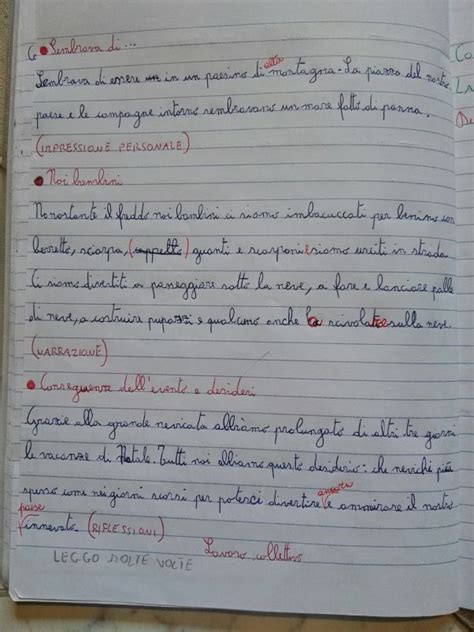 Sembrava di...
Sembrava di essere in un paesino di alta montagna. La piazza del nostro
paese e le campagne intorno sembravano un mare fatto di panna.
(IMPRESSIONE PERSONALE)
Noi bambini
Nonostante il freddo noi bambini ci siamo imbacuccati per benino con
berretto, sciarpa, (cappotto) guanti e scarponi e siamo usciti in strada.
Ci siamo divertiti a passeggiare sotto la neve, a fare e lanciare palle
di neve, a costruire pupazzi e qualcuno anche scivolate sulla neve
(NARRAZIONE)
Conseguenze dell'evento e desideri
Grazie alla grande nevicata abbiamo prolungato di altri tre giorni
le vacanze di Natale. Tutti noi abbiamo questo desiderio: che nevichi più
spesso come nei giorni scorsi per poterci divertire ancora e ammirare il nostro
paese innevato. (RIFLESSIONI)
Lavoro collettivo
LEGGO MOLTE VOLTE